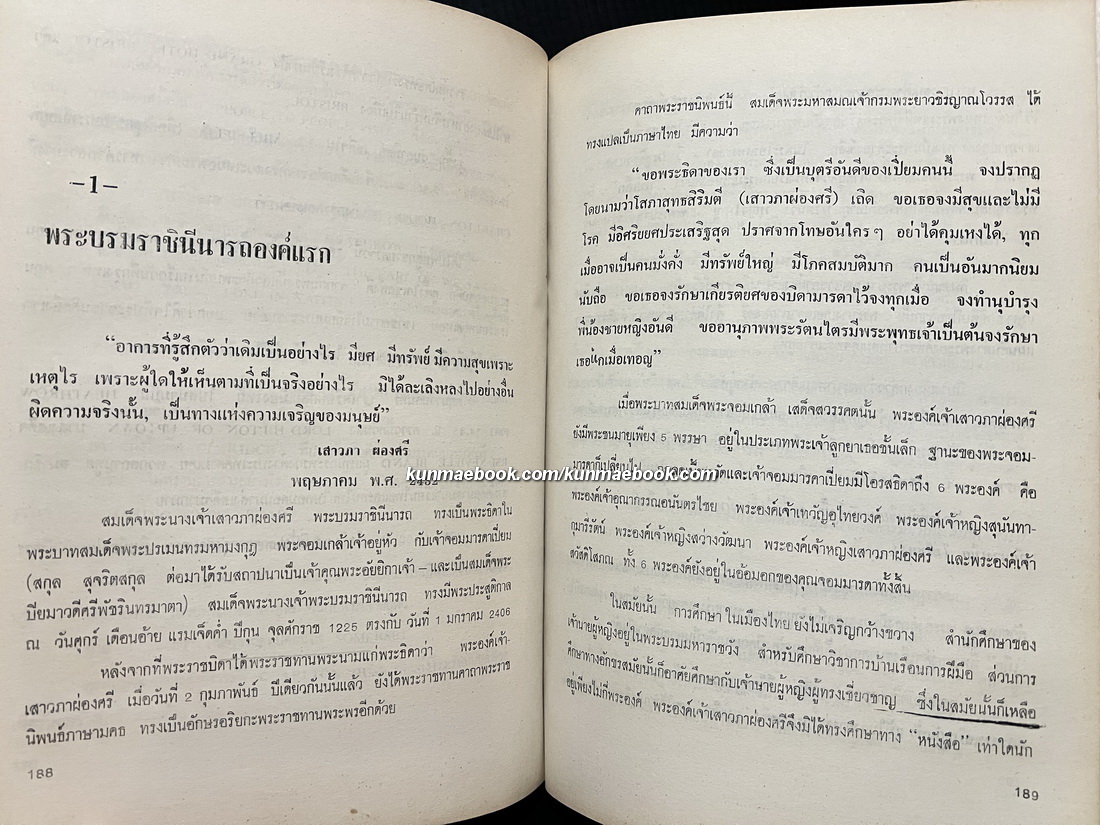 -1-
พระบรมราชินีนารถองค์แรก
“อาการที่รู้สึกตัวว่าเดิมเป็นอย่างไร มียศ มีทรัพย์ มีความสุขเพราะ
เหตุไร เพราะผู้ใดให้เห็นตามที่เป็นจริงอย่างไร มิได้ละเลิงหลงไปอย่างอื่น
ผิดความจริงนั้น, เป็นทางแห่งความเจริญของมนุษย์”
เสาวภา ผ่องศรี
kunmaebook.com/kunmaebook.com
พฤษภาคม พ.ศ.
สมเด็จพระนางเจ้าเสาวภาผ่องศรี พระบรมราชินีนารถ ทรงเป็นพระธิดาใน
พระบาทสมเด็จพระปรเมนทรมหามงกุฎ พระจอมเกล้าเจ้าอยู่หัว กับเจ้าจอมมารดาเปี่ยม
(สกุล สุจริตสกุล ต่อมาได้รับสถาปนาเป็นเจ้าคุณพระอัยยิกาเจ้า – และเป็นสมเด็จพระ
ปิยมาวดีศรีพัชรินทรมาตา) สมเด็จพระนางเจ้าพระบรมราชินีนารถ ทรงมีพระประสูติกาล
ณ วันศุกร์ เดือนอ้าย แรมเจ็ดค่ำ ปีกุน จุลศักราช 1225 ตรงกับ วันที่ 1 มกราคม 2406
หลังจากที่พระราชบิดาได้พระราชทานพระนามแก่พระธิดาว่า พระองค์เจ้า-
เสาวภาผ่องศรี เมื่อวันที่ 2 กุมภาพันธ์ ปีเดียวกันนั้นแล้ว ยังได้พระราชทานคาถาพระราช
นิพนธ์ภาษามคธ ทรงเป็นอักษรอริยกะพระราชทานพระพรอีกด้วย
188
คาถาพระราชนิพนธ์นี้ สมเด็จพระมหาสมณเจ้ากรมพระยาวชิรญาณโวรรส ได้
ทรงแปลเป็นภาษาไทย มีความว่า
“ขอพระธิดาของเรา ซึ่งเป็นบุตรีอันดีของเปี่ยมคนนี้ จงปรากฏ
โดยนามว่าโสภาสุทธสิริมตี (เสาวภาผ่องศรี) เถิด ขอเธอจงมีสุขและไม่มี
โรค มีอิศริยยศประเสริฐสุด ปราศจากโทษอันใครๆ อย่าได้คุมเหงได้, ทุก
เมื่ออาจเป็นคนมั่งคั่ง มีทรัพย์ใหญ่ มีโภคสมบัติมาก คนเป็นอันมากนิยม
นับถือ ขอเธอจงรักษาเกียรติยศของบิดามารดาไว้จงทุกเมื่อ จงทำนุบำรุง
พี่น้องชายหญิงอันดี ขออานุภาพพระรัตนไตรมีพระพุทธเจ้าเป็นต้นจงรักษา
เธอแกเมื่อเทอญ”
เมื่อพระบาทสมเด็จพระจอมเกล้า เสด็จสวรรคตนั้น พระองค์เจ้าเสาวภาผ่องศรี
ยังมีพระชนมายุเพียง 5 พรรษา อยู่ในประเภทพระเจ้าลูกยาเธอชั้นเล็ก ฐานะของพระจอม-
มารดาก็เปลี่ยนไป และเจ้าจอมมารดาเปี่ยมมีโอรสธิดาถึง 6 พระองค์ คือ
พระองค์เจ้าอุณากรรณอนันตรไชย พระองค์เจ้าเทวัญอุไทยวงศ์ พระองค์เจ้าหญิงสุนันทา-
กุมารีรัตน์ พระองค์เจ้าหญิงสว่างวัฒนา พระองค์เจ้าหญิงเสาวภาผ่องศรี และพระองค์เจ้า
สวัสดิโสภณ ทั้ง 6 พระองค์ยังอยู่ในอ้อมอกของคุณจอมมารดาทั้งสิ้น
ในสมัยนั้น การศึกษาในเมืองไทยยังไม่เจริญกว้างขวาง สำนักศึกษาของ
เจ้านายผู้หญิงอยู่ในพระบรมมหาราชวัง สำหรับศึกษาวิชาการบ้านเรือนการฝีมือ ส่วนการ
ศึกษาทางอักษรสมัยนั้นก็อาศัยศึกษากับเจ้านายผู้หญิงผู้ทรงเชี่ยวชาญ ซึ่งในสมัยนั้นก็เหลือ
อยู่เพียงไม่กี่พระองค์ พระองค์เจ้าเสาวภาผ่องศรีจึงมิได้ทรงศึกษาทาง “หนังสือ” เท่าใดนัก
189